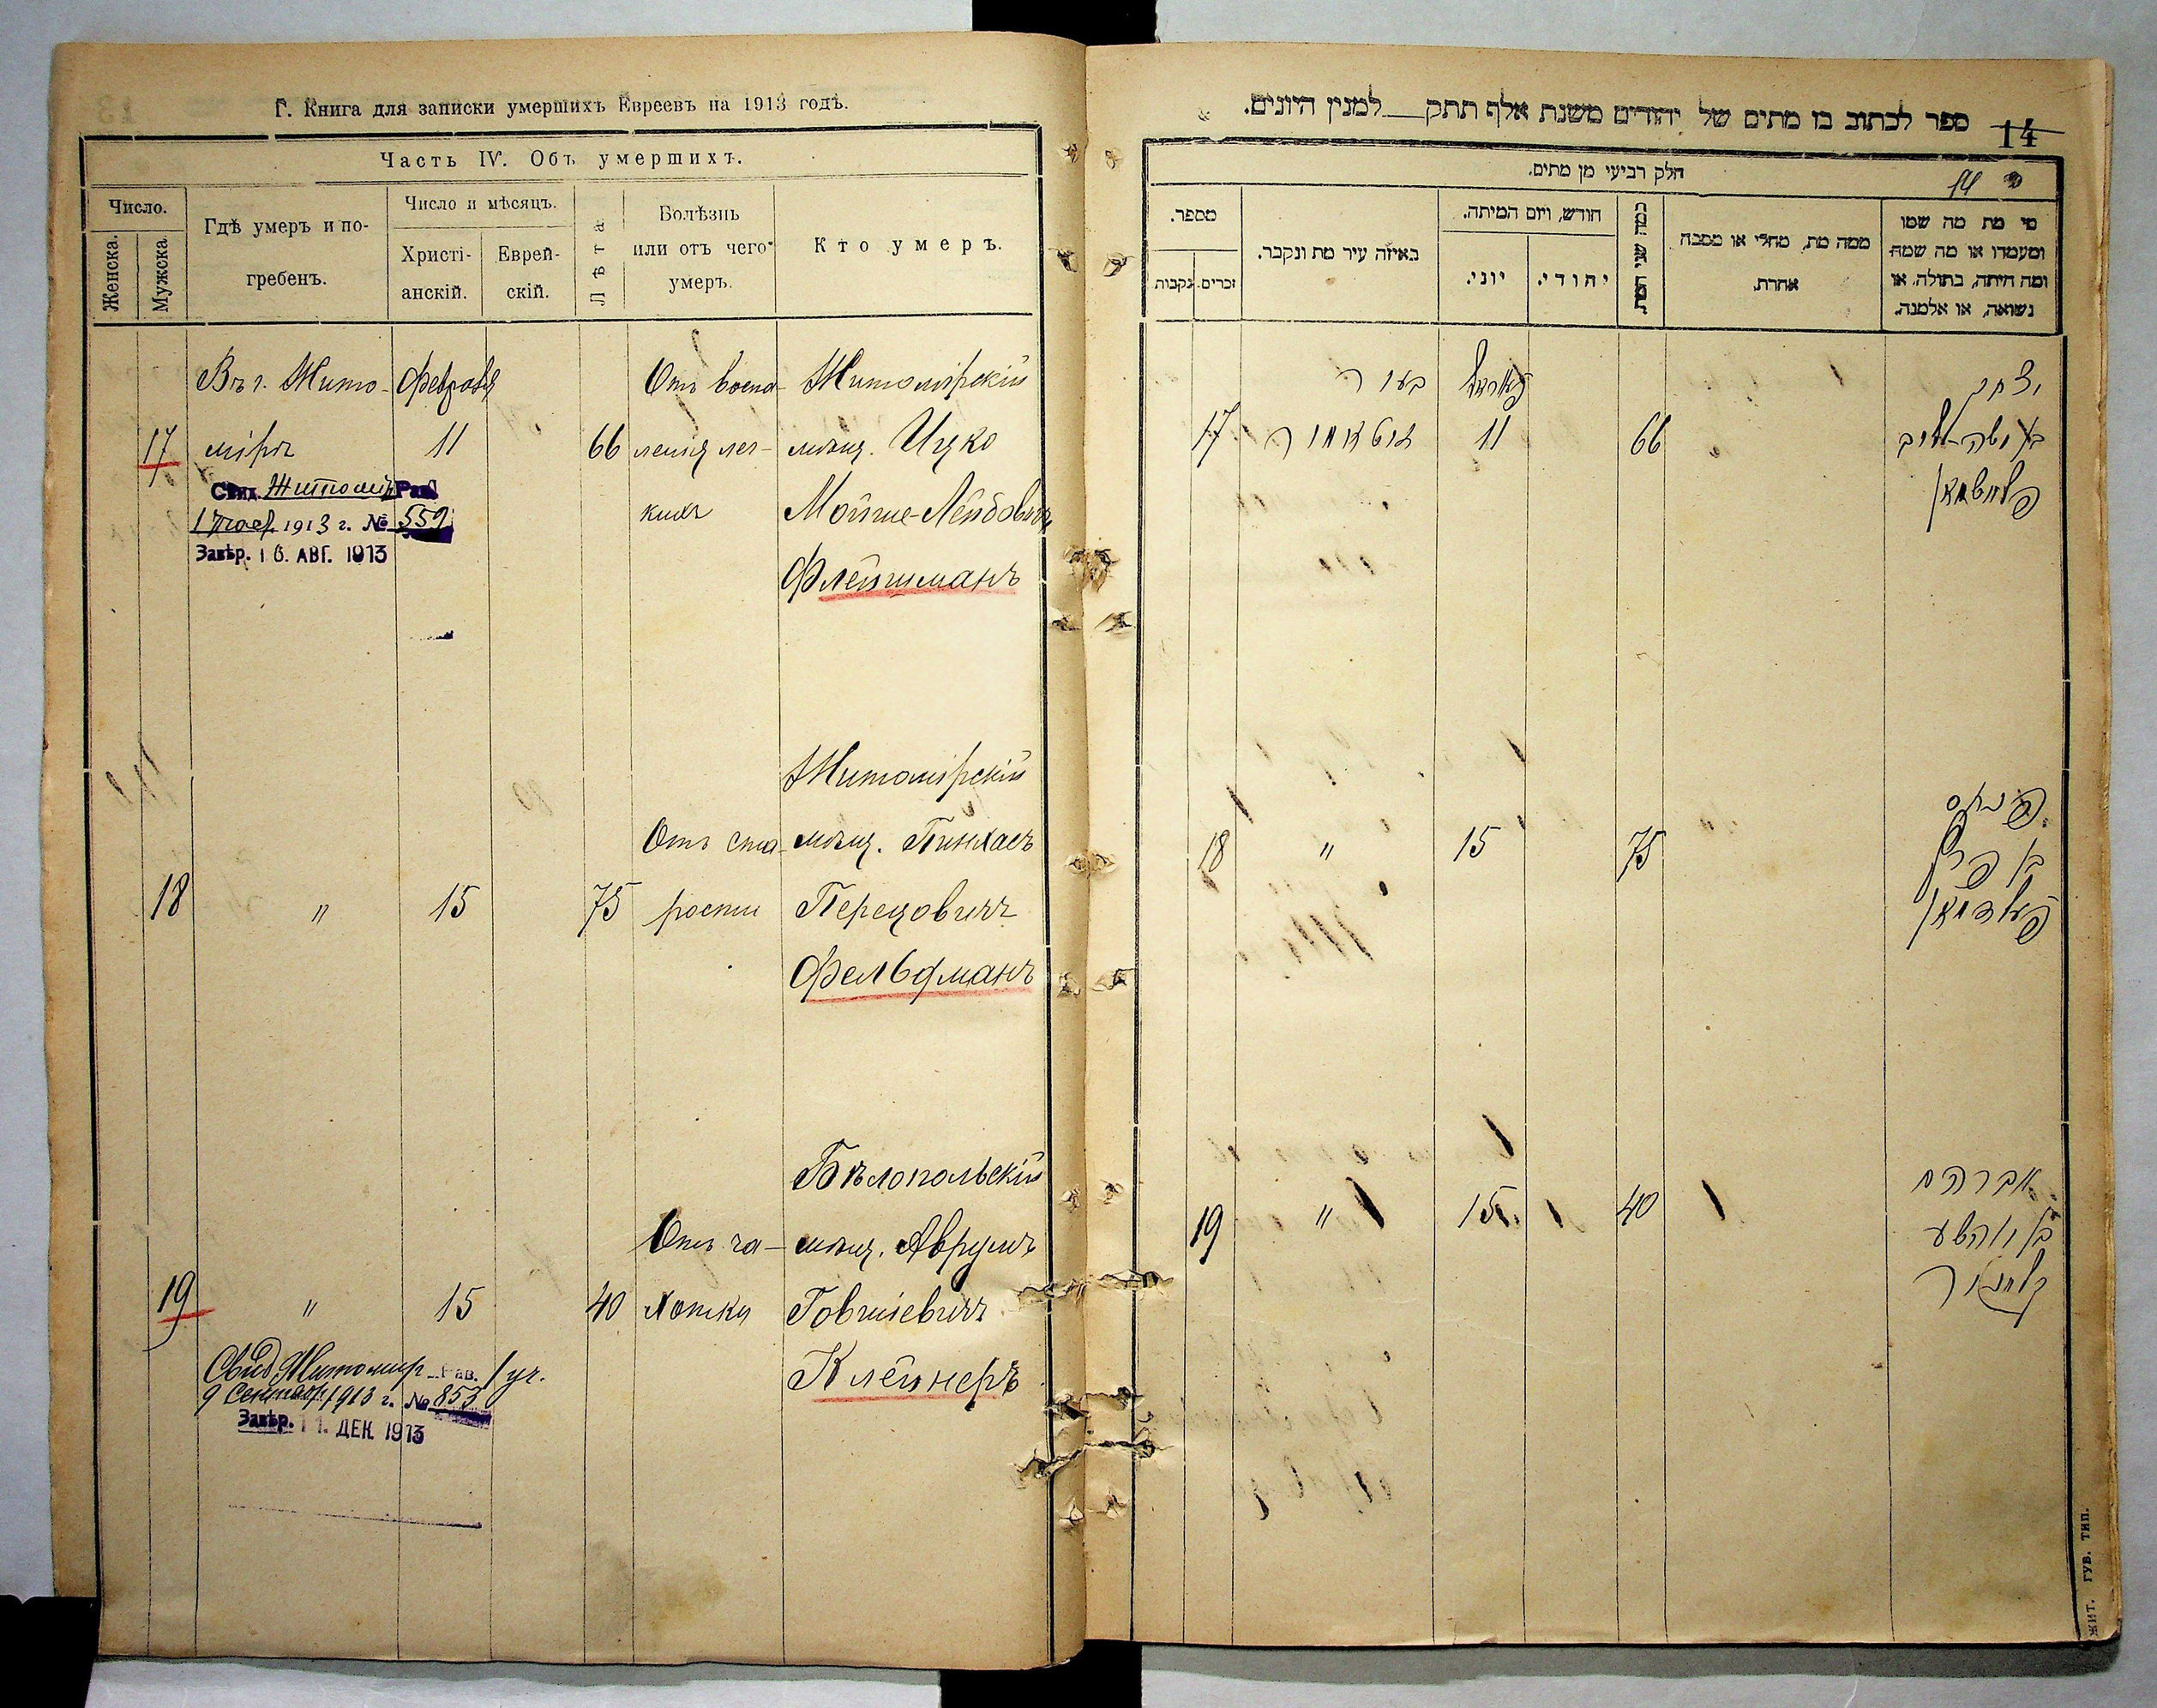 Г. Книга для записки умершихъ Евреевъ на 1913 годъ.
Часть IV. Объ умершихъ.
Число.
Женска.
Мужска.
Гдѣ умеръ и по-
гребенъ.
Число и мѣсяцъ.
Христі-
анскій.
Еврей-
скій.
Лѣта
Болѣзнь
или отъ чего
умеръ.
Кто умеръ.
Въ г. Жито- Февраля Отъ воспа- Житомірскій
17 міръ 11 66 ленія лег- мѣщ. Ицко
кихъ Мойше-Лейбовичъ
Флейшманъ
Свид. Житомір Рав.
1913 г. № 559
Завѣр. 16. АВГ. 1913
Житомірскій
Отъ ста- мѣщ. Пинхасъ
18 " 15 75 рости Перецовичъ
Фельдманъ
Бѣлопольскій
Отъ ча- мѣщ. Аврумъ
19 " 15 40 хотки Говшіевичъ
Клейнеръ
Свид Житомир Рав. 1 уч.
9 Сентябр 1913 г. № 853
Завѣр. 11. ДЕК. 1913
ספר לכתוב בו מתים של יהודים משנת אלף תתק למנין היונים.
14
חלק רביעי מן מתים.
14
מספר.
נקבות
זכרים.
באיזה עיר מת ונקבר.
חודש, ויום המיתה.
יוני.
יהודי.
כמה שני המת
ממה מת, מחלי או מסבה
אחרת.
מי מת מה שמו
ומעמדו או מה שמה
ומה היתה, בתולה, או
נשואה, או אלמנה.
בעיר פעוראל יצחק
17 זיטאמיר 11 66 בן משה-לייב
פליישמאן
פנחס
18 " 15 75 בן פרץ
פעלדמאן
אברהם
19 " 15 40 בן יהושע
קליינער
ЖИТ. ГУБ. ТИП.